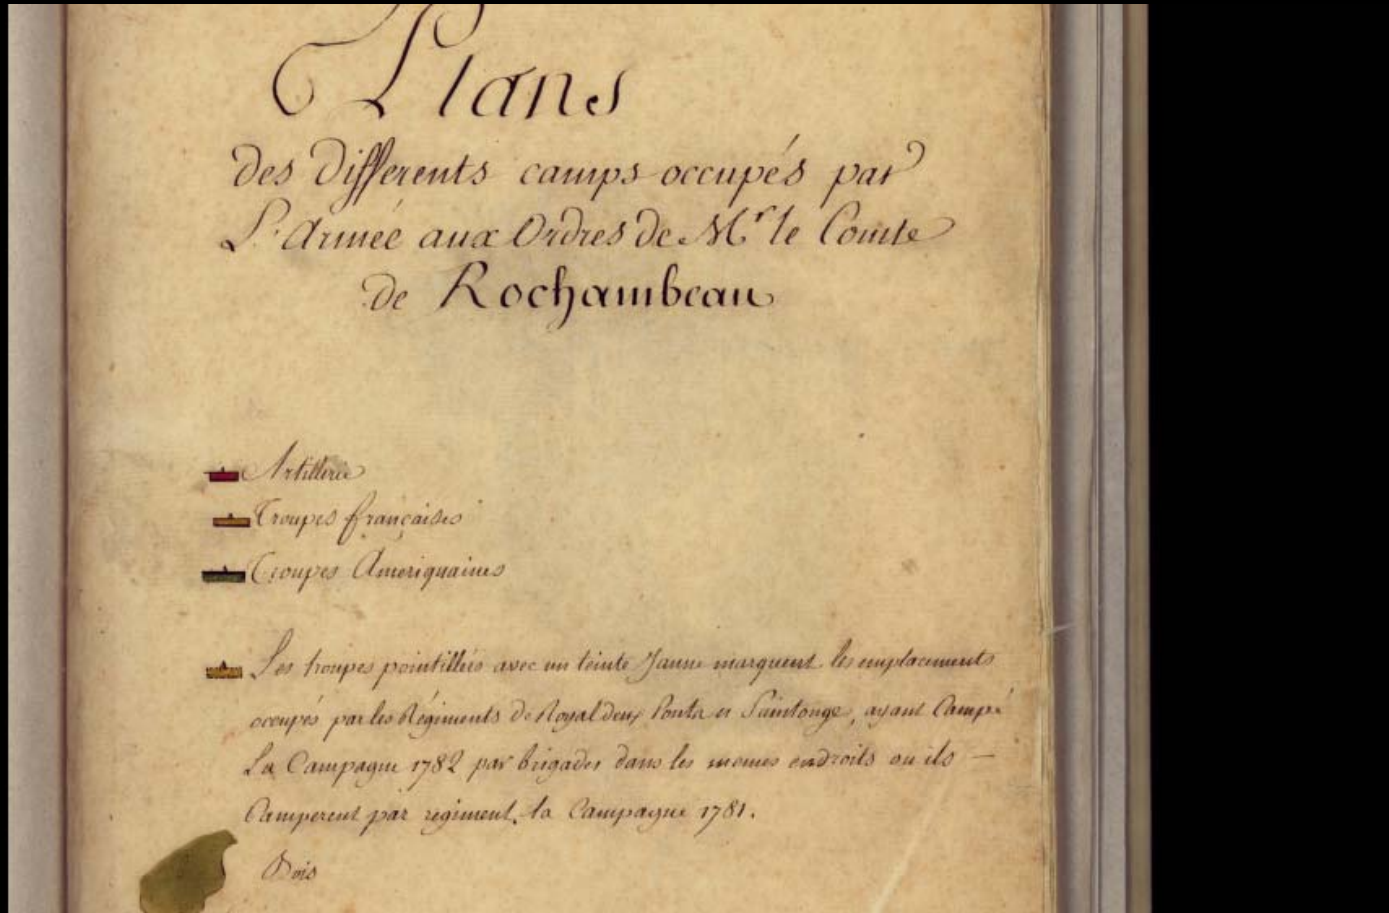 Plans
des differents camps occupés par
L'Armée aux Ordres de Mr le Comte
de Rochambeau
Artillerie
Troupes françaises
Troupes Ameriquaines
Les troupes pointillées avec un teinte Jaune marquent les emplacements
occupés par les Régiments de Royal deux Ponts et Saintonge, ayant Campé
La Campagne 1782 par brigades dans les memes endroits ou ils —
Camperent par regiment, la Campagne 1781.
Bois